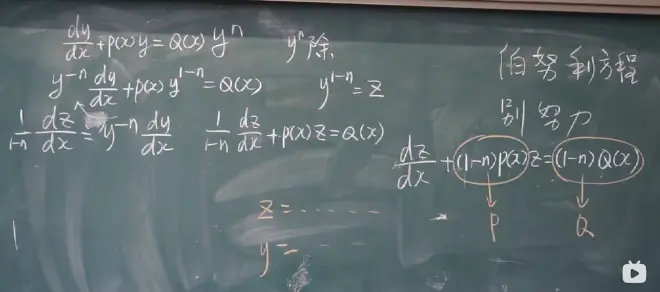 dy/dx + p(x)y = Q(x) y^n y^n除
y^-n dy/dx + p(x) y^1-n = Q(x) y^1-n = z
1/1-n dz/dx = y^-n dy/dx 1/1-n dz/dx + p(x)z = Q(x)
伯努利方程
别努力
dz/dx + (1-n)p(x)z = (1-n)Q(x)
P Q
z = ......
y = ...